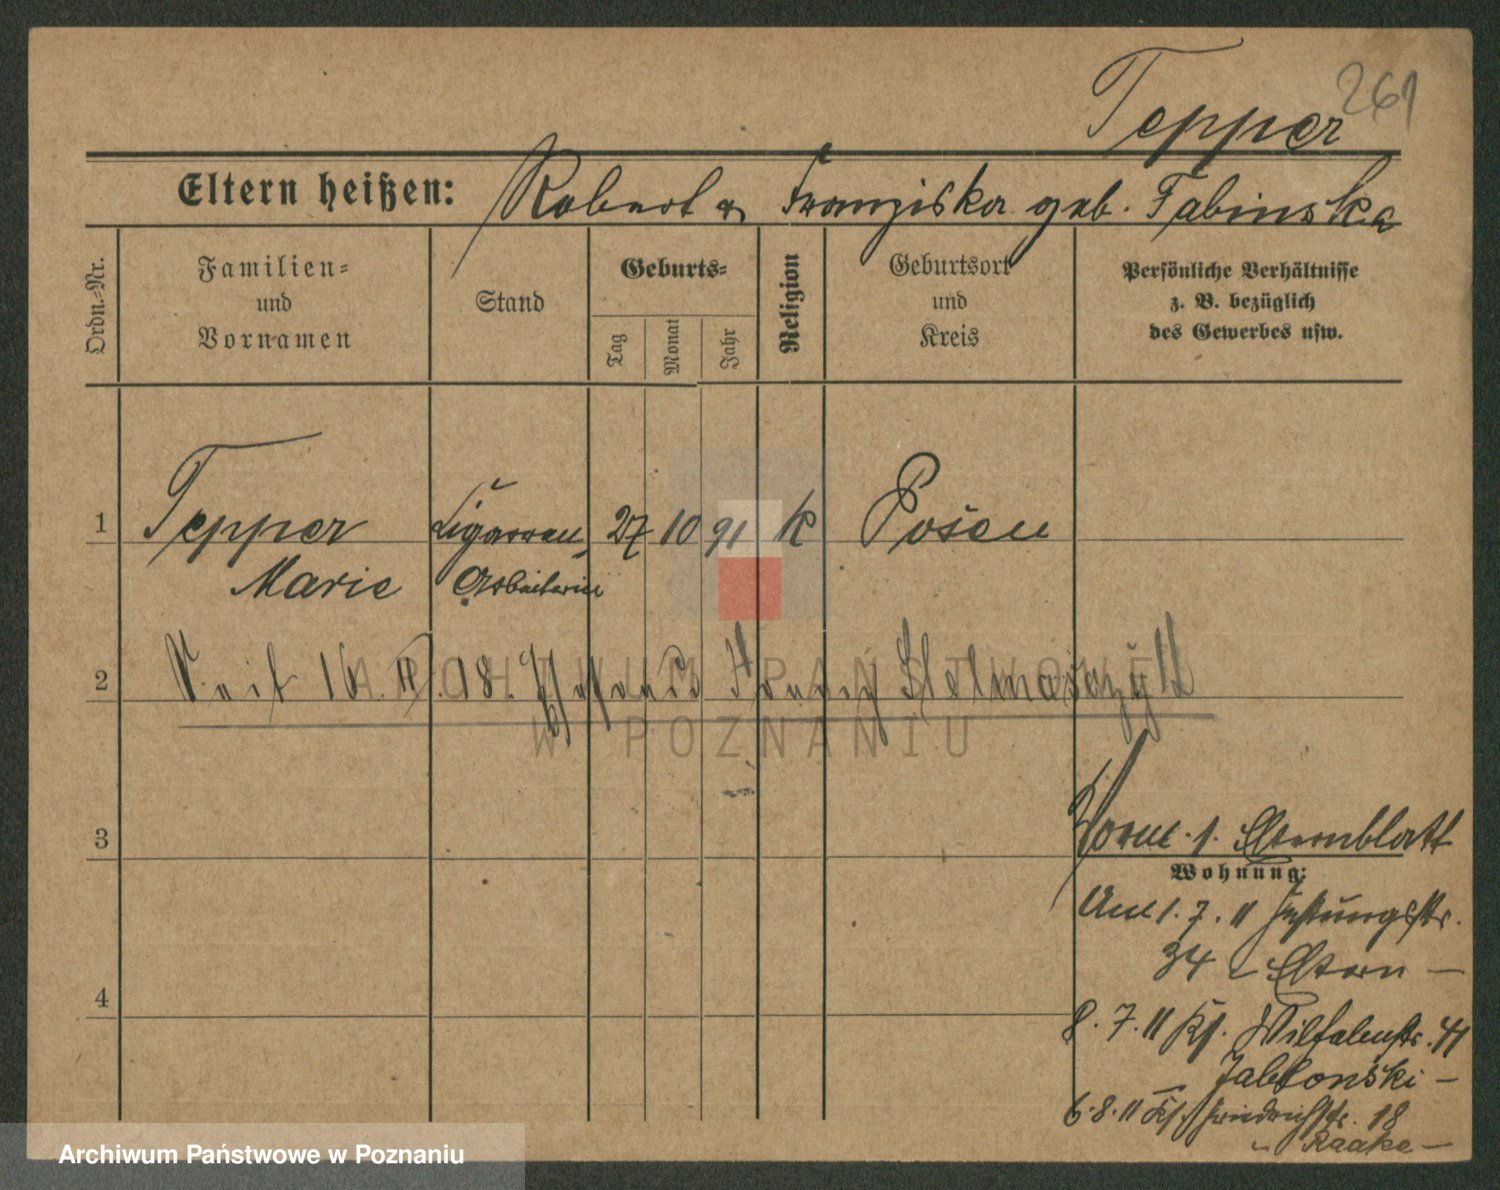 261
Tepper
Eltern heißen: Robert u. Franziska geb. Fabinska
Ordn.-Nr.
Familien-
und
Vornamen
Stand
Geburts-
Tag
Monat
Jahr
Religion
Geburtsort
und
Kreis
Persönliche Verhältnisse
z. B. bezüglich
des Gewerbes usw.
1 Tepper Zigarren 27 10 91 K Posen
Marie Arbeiterin
2 Seit 16. 18.
ARCHIWUM PAŃSTWOWE
W POZNANIU
3 Elternblatt
Wohnung:
Am 1. 7. 11
34 Eltern —
4
8. 7. 11 41
Jabłonski —
6. 8. 11 Friedrichstr. 18
Raake —
Archiwum Państwowe w Poznaniu